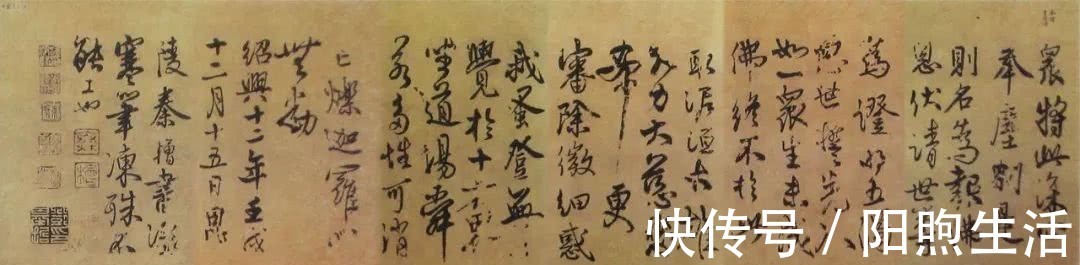 眾將此深
奉塵剎是
則名為報佛
恩伏請世尊
為證明五
惡世誓先入
如一眾生未成
佛終不於
取泥洹大
力大慈
希更
審除微細惑
我蚤登無
覺於十方界
坐道場舜
若多性可消
亡爍迦羅心
無動
紹興十二年壬戌
十二月十五日
陵秦檜書
寒筆凍殊不
能工也
快传号/阳煦生活